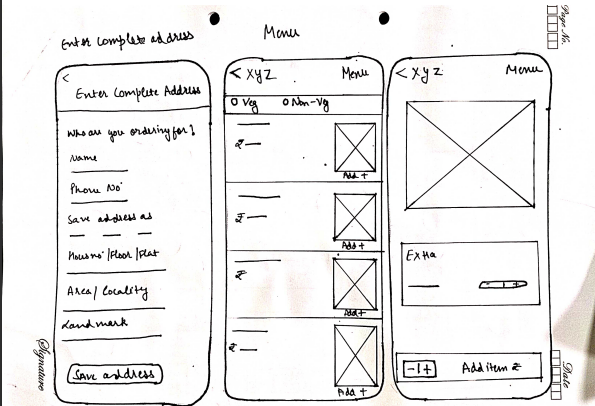 Enter Complete address
Menu
Page No.
<
Enter Complete Address
Who are you ordering for?
Name
Phone No
Save address as
House no /Floor /Flat
Area/ Locality
Landmark
Save address
< XYZ Menu
Veg Non-Veg
₹
Add +
₹
Add +
₹
Add +
₹
Add +
< XYZ Menu
Extra
- 1 +
-1+ Add item ₹
Signature
Date